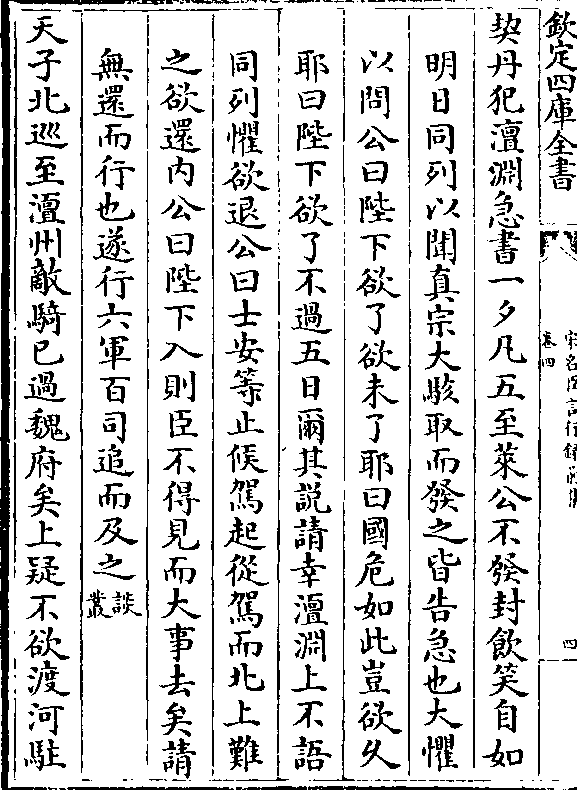 欽定四庫全書
宋名臣言行錄前集
卷四
四
契丹犯澶淵急書一夕凡五至萊公不發封飲笑自如
明日同列以聞真宗大駭取而發之皆告急也大懼
以問公曰陛下欲了欲未了耶曰國危如此豈欲久
耶曰陛下欲了不過五日爾其説請幸澶淵上不語
同列懼欲退公曰士安等止候駕起從駕而北上難
之欲還内公曰陛下入則臣不得見而大事去矣請
無還而行也遂行六軍百司追而及之談叢
天子北巡至澶州敵騎已過魏府矣上疑不欲渡河駐